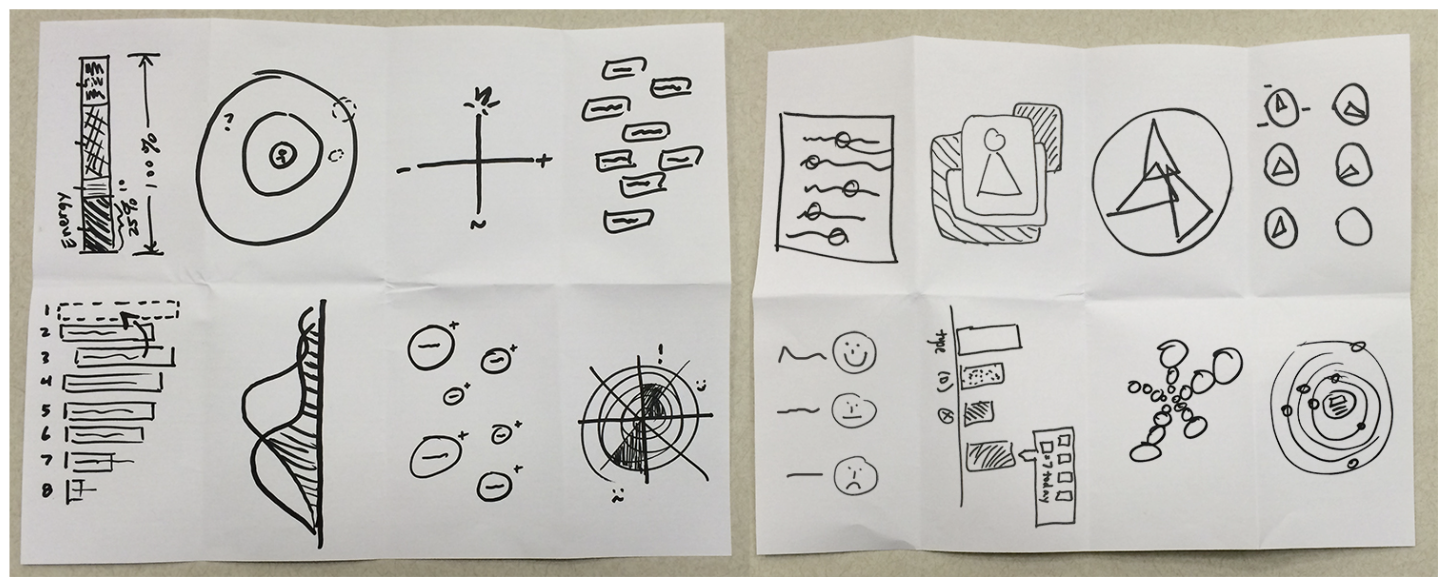 Energy
10
25%
100%
?
- +
~
1
2
3
4
5
6
7
8
+
+
+
+
+
+
!
type
= 7 today